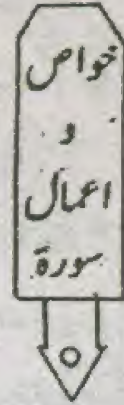 خواص
و
اعمال
سورة